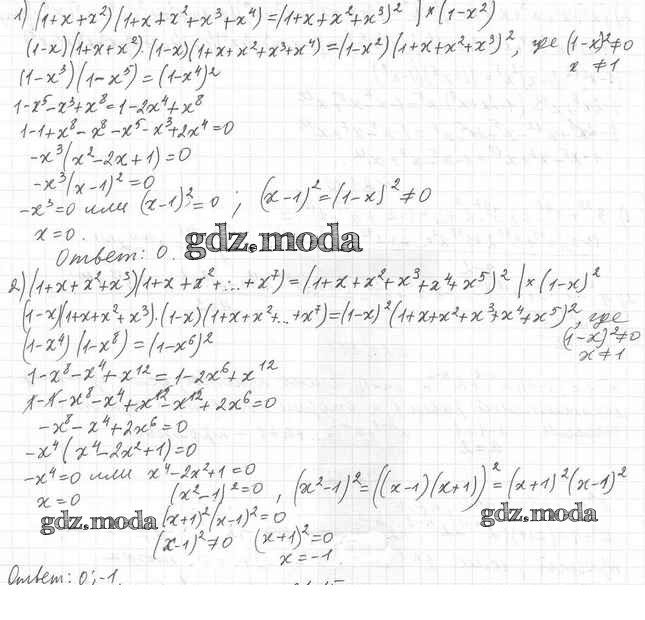 1) (1+x+x²)(1+x+x²+x³+x⁴)=(1+x+x²+x³)² |×(1-x²)
(1-x)(1+x+x²)·(1-x)(1+x+x²+x³+x⁴)=(1-x²)(1+x+x²+x³)², где (1-x)²≠0
x ≠1
(1-x³)(1-x⁵)=(1-x⁴)²
1-x⁵-x³+x⁸=1-2x⁴+x⁸
1-1+x⁸-x⁸-x⁵-x³+2x⁴=0
-x³(x²-2x+1)=0
-x³(x-1)²=0
-x³=0 или (x-1)²=0 ; (x-1)²=(1-x)²≠0
x=0.
Ответ: 0.
gdz.moda
2) (1+x+x²+x³)(1+x+x²+...+x⁷)=(1+x+x²+x³+x⁴+x⁵)² |×(1-x)²
(1-x)(1+x+x²+x³)·(1-x)(1+x+x²+...+x⁷)=(1-x)²(1+x+x²+x³+x⁴+x⁵)², где
(1-x)²≠0
x≠1
(1-x⁴)(1-x⁸)=(1-x⁶)²
1-x⁸-x⁴+x¹²=1-2x⁶+x¹²
1-1-x⁸-x⁴+x¹²-x¹²+2x⁶=0
-x⁸-x⁴+2x⁶=0
-x⁴(x⁴-2x²+1)=0
-x⁴=0 или x⁴-2x²+1=0
x=0 (x²-1)²=0 , (x²-1)²=((x-1)(x+1))²=(x+1)²(x-1)²
gdz.moda (x+1)²(x-1)²=0 gdz.moda
(x-1)²≠0 (x+1)²=0
x=-1.
Ответ: 0;-1.